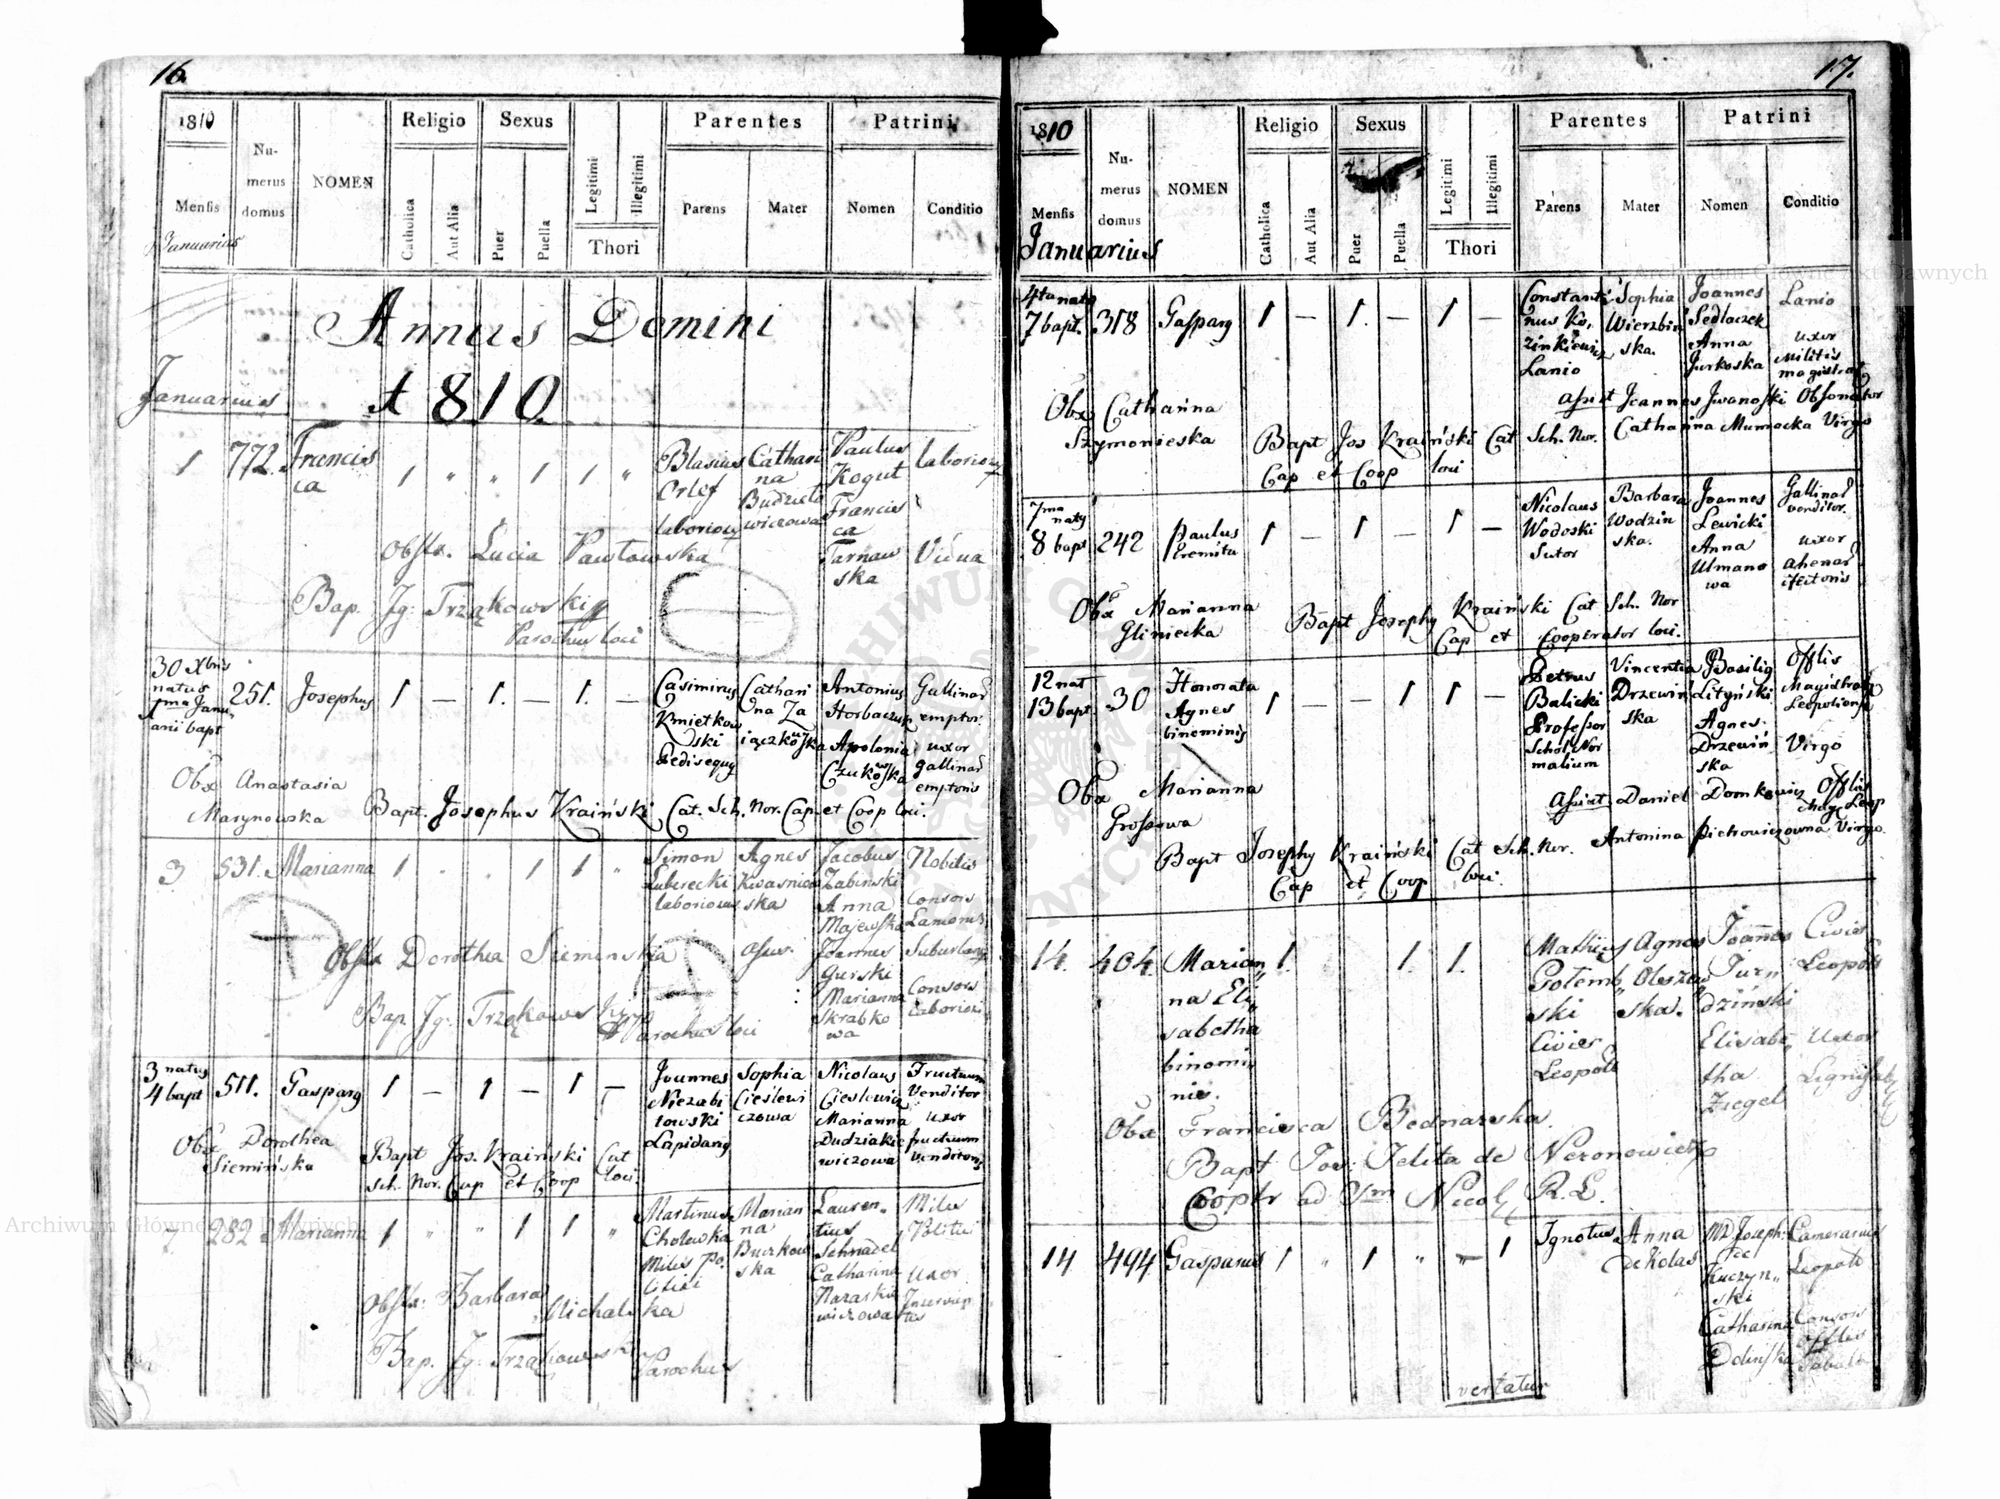 16.
1810
Numerus domus
NOMEN
Religio
Sexus
Parentes
Patrini
Mensis
Januarius
Catholica
Aut Alia
Puer
Puella
Legitimi
Illegitimi
Thori
Parens
Mater
Nomen
Conditio
Annus Domini
Januarius
1810.
1 772. Francis
ca
1 " " 1 1 "
Blasius
laboriosus
Cathari
na
Paulus
Kogut
Francis
ca
Tarnaw
ska
laboriosus
Vidua
Obstx. Lucia Pawłowska
Bap. Ig: Trząkowski
Parochus loci
30 Xbris
natus
1ma Janu
arii bapt
251. Josephus 1 — 1. — 1. —
Casimirus
Kmietkow
ski
Pedisequus
Cathari
na Za
iączkowska
Antonius
Horbaczuk
Apolonia
Czukowska
Gallinar
emptor.
uxor
gallinar
emptoris
Obx Anastasia
Marynowska
Bapt. Josephus Kraiński Cat. Sch. Nor. Cap. et Coop loci.
3 531. Marianna 1 . . 1 1 "
Simon
Luberecki
laboriosus
Agnes
Kwasniew
ska
Jacobus
Żabinski
Anna
Majewska
Joannes
Gurski
Marianna
Skrabko
wa
Nobilis
Consors
Suburbanus
Consors
Laboriosi
Obstx Dorothea Sieminska
Bap. Ig: Trząkowski
Parochus loci
3 natus
4 bapt
511. Gasparus 1 — 1 — 1 —
Joannes
Niezabi
towski
Lapidarius
Sophia
Cieślewi
czowa
Nicolaus
Cieslewicz
Marianna
Dudziakie
wiczowa
Fructuum
Venditor
uxor
fructuum
venditoris
Obx Dorothea
Siemińska
Bapt Jos. Kraiński Cat
Sch. Nor. Cap et Coop loci
7. 282 Marianna 1 " " 1 1 "
Martinus
Cholewka
Miles Po.
litiei
Marian
na
Buczkow
ska
Lauren„
tius
Schnadel
Catharina
Miles
Politiei
Uxor
Obstx: Barbara
Michalska
Bap. Ig: Trząkowski
Parochus
17.
1810
Numerus domus
NOMEN
Religio
Sexus
Parentes
Patrini
Mensis
Januarius
Catholica
Aut Alia
Puer
Puella
Legitimi
Illegitimi
Thori
Parens
Mater
Nomen
Conditio
4ta natus
7 bapt. 318 Gasparus 1 — 1. — 1 —
Constanti
nus Ko,
zinkiewicz
Lanio
Sophia
Wierzbiń
ska.
Joannes
Sedlaczek
Anna
Jurkoska
Lanio
uxor
Militis
magistrat
Assist Joannes Iwanoski Obsonator
Catharina Mumocka Virgo
Obx Catharina
Szymonieska
Bapt Jos Kraiński Cat Sch. Nor.
Cap et Coop loci
7ma
natus
8 bapt 242 Paulus
Eremita
1 — 1 — 1 —
Nicolaus
Wodoski
Sutor
Barbara
Wodzin
ska.
Joannes
Lewicki
Anna
Ulmano
wa
Gallinar
venditor.
uxor
ahenar
Obx Marianna
Gliniecka
Bapt Josephus Kraiński Cat Sch. Nor
Cap et Cooperator loci.
12 nat
13 bapt 30 Honorata
Agnes
binominis
1 — — 1 1 —
Petrus
Balicki
Professor
Schol. Nor
malium
Vincentia
Drzewiń
ska
Basilius
Lityński
Agnes
Drzewiń
ska
Offlis
Magistrat
Leopoliensis
Virgo
Assist Daniel Domkowicz Offlis
Mag Leop
Antonina Pietrowiczowna Virgo
Obx Marianna
Grossowa
Bapt Josephus Kraiński Cat Sch. Nor.
Cap et Coop loci.
14. 404 Marian„
na Eli„
sabetha
binomi
nis.
1. 1. 1.
Mathias
Gołemb„
ski
Civis
Leopol
Agnes
Olszew„
ska.
Joannes
Jurn
dziński
Elisabe„
tha
Ziegel
Civis
Leopol
Uxor
Obx Francisca Bednarska.
Bapt Jos: Jelita de Neronowicz
Cooptr ad Nicol R. L.
14 494. Gasparus 1 " 1 " — 1
Ignotus
Anna
de Kolas
Joseph:
Kuczyn„
ski
Catharina
Dolińska
Camerarius
Leopol
Consors
Offlis
vertatur
Archiwum Główne Akt Dawnych
Archiwum Główne Akt Dawnych